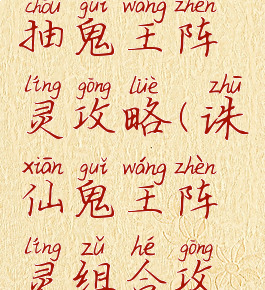 chōu guǐ wáng zhèn
抽鬼王阵
líng gōng lüè zhū
灵攻略(诛
xiān guǐ wáng zhèn
仙鬼王阵
líng zǔ hé gōng
灵组合攻